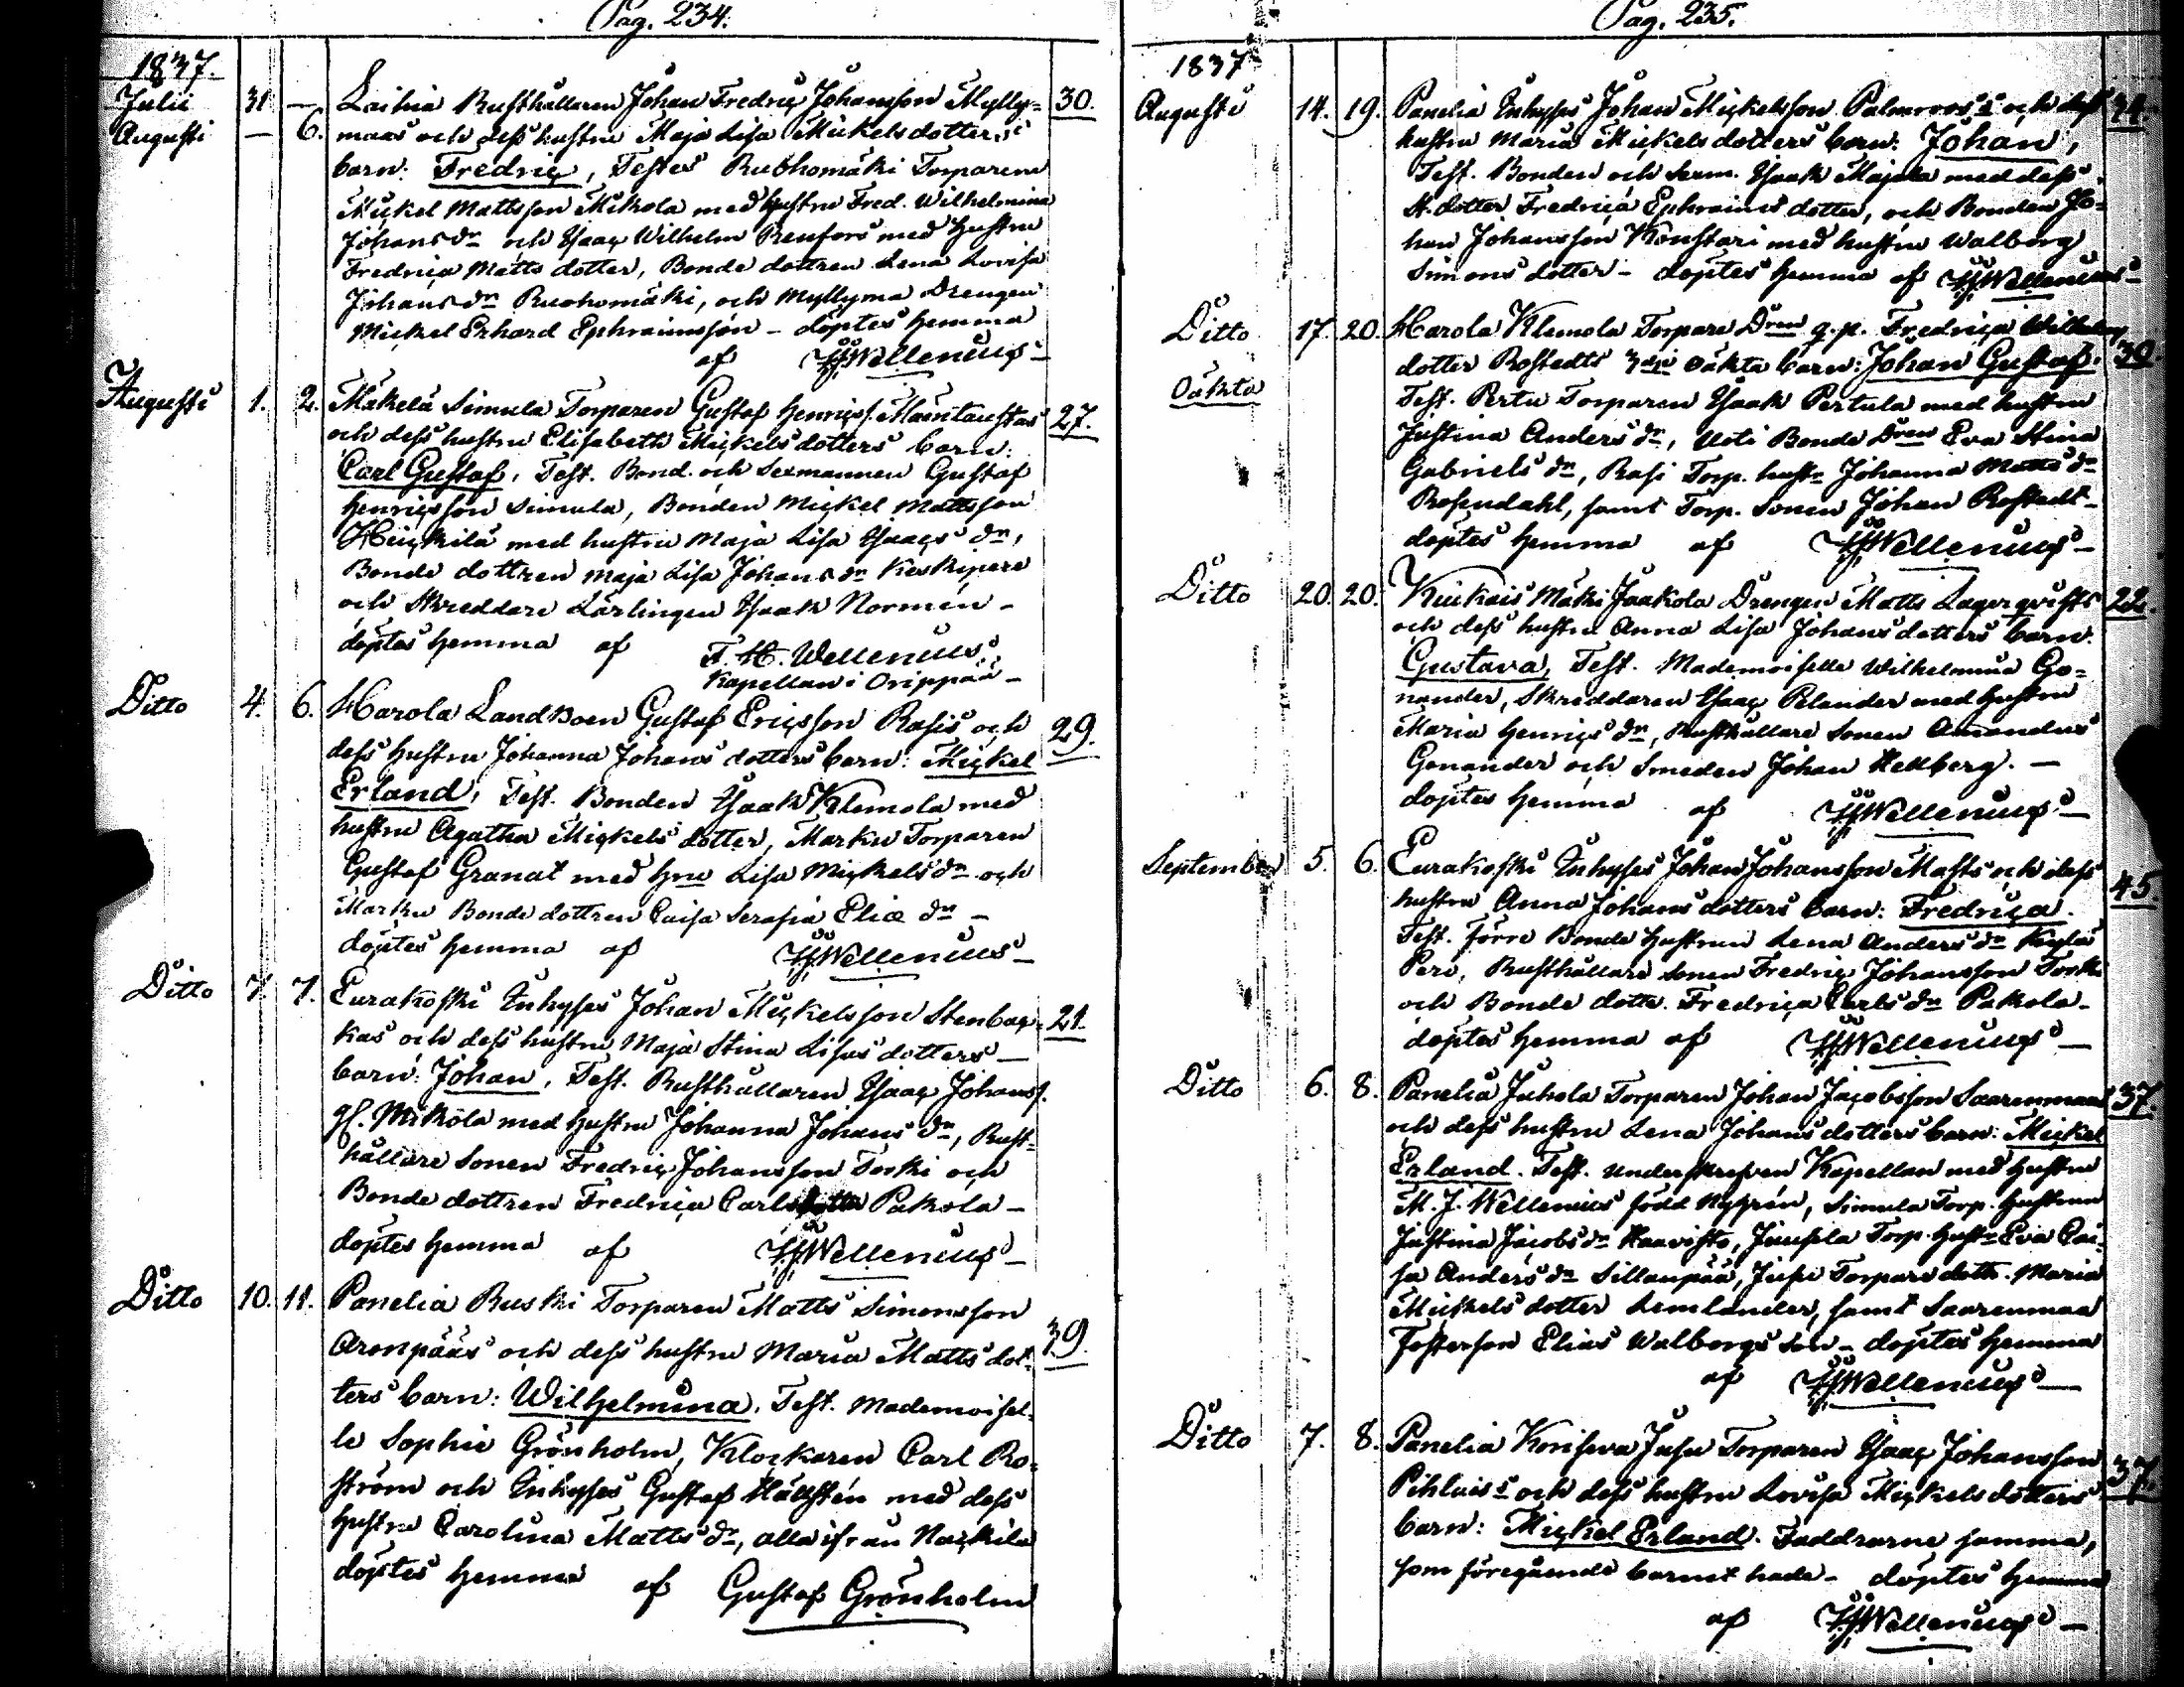 Pag. 234.
1837.
Julii 31. — Laihia Rusthållaren Johan Fredric Johansson Mylly= 30.
Augusti — 6. maas och dess hustru Maja Lisa Mickelsdotters
barn: Fredric, Testes Ruohomäki Torparen
Mickel Mattsson Mikola med hustru Fred. Wilhelmina
Johansdr och Isaac Wilhelm Renfors med hustru
Fredrica Mattsdotter, Bonde dottren Lena Lovisa
Johansdr Ruohomäki, och Myllyma Drengen
Mickel Erhard Ephraimsson – döptes hemma
af Wellenius –
Augusti 1. 2. Mäkelä Simula Torparen Gustaf Henrics. Mäntaustas 27.
och dess hustru Elisabeth Mickelsdotters barn:
Carl Gustaf, Test. Bond. och Sexmannen Gustaf
Henricsson Simula, Bonden Mickel Mattsson
Heickilä med hustru Maja Lisa Isaacs dr,
Bonde dottren Maja Lisa Johansdr Keskipere
och Skreddare Lärlingen Isaak Normén –
döptes hemma af F. H. Wellenius.
Kapellan i Orippää –
Ditto 4. 6. Harola Landboen Gustaf Ericsson Rasis och 29.
dess hustru Johanna Johans dotters barn: Mickel
Erland, Test. Bonden Isaak Klemola med
hustru Agatha Mickels dotter, Marku Torparen
Gustaf Granat med hru Lisa Mickelsdr och
Marku Bonde dottren Caisa Serafia Eliæ dr –
döptes hemma af Wellenius –
Ditto 7. 7. Eurakoski Inhyses Johan Mickelsson Stenbac= 21.
kas och dess hustru Maja Stina Lisas dotters –
barn: Johan, Test. Rusthållaren Isaac Johans.
gl. Mikola med hustru Johanna Johans dr, Rust=
hållare Sonen Fredric Johansson Torki och
Bonde dottren Fredrica Carlsdotter Pakola –
döptes hemma af Wellenius –
Ditto 10. 11. Panelia Ruski Torparen Matts Simonsson
Aronpääs och dess hustru Maria Matts dot= 39.
ters barn: Wilhelmina. Test. Mademoisel=
le Sophie Grönholm, Klockaren Carl Ro=
ström och Inhyses Gustaf Hällstén med dess
hustru Carolina Matts dr, alla ifrån Nackila
döptes hemma af Gustaf Grönholm
Pag. 235.
1837
Augusti 14. 19. Panelia Inhyses Johan Mickelsson Palmroos's och dess
hustru Maria Mickels dotters barn: Johan,
Test. Bonden och Sexm. Isaak Majala med dess
H. dotter Fredrica Ephraims dotter, och Bonden Jo=
han Johansson Konstari med hustru Walborg
Simons dotter – döptes hemma af Wellenius –
Ditto 17. 20. Harola Klemola Torpare Dren q.p. Fredrica Wilhelms
dotter Rostedts 3dje oäkta barn: Johan Gustaf. 30.
Oäkta Test. Pertu Torparen Isaak Pertula med hustru
Justina Anders dr, Uoti Bonde Dren Eva Stina
Gabriels dr, Rasi Torp. hustr Johanna Matts dr
Rosendahl, samt Torp. Sonen Johan Rostedt –
döptes hemma af Wellenius –
Ditto 20. 20. Kiukais Mäki Jaakola Drengen Matts Lagerqvists 22.
och dess hustru Anna Lisa Johans dotters barn.
Gustava, Test. Mademoiselle Wilhelmina Go=
nander, Skreddaren Isaac Pelander med hustru
Maria Henrics dr, Rusthållare Sonen Amandus
Gonander och Smeden Johan Hedberg. –
döptes hemma af Wellenius –
September 5. 6. Eurakoski Inhyses Johan Johansson Masts och dess
hustru Anna Johans dotters barn: Fredrica. 45.
Test. förre Bonde hustrun Lena Anders dr Kylä
Pere, Rusthållare Sonen Fredric Johansson Torki
och Bonde dottr. Fredrica Carls dr Pakola –
döptes hemma af Wellenius –
Ditto 6. 8. Panelia Juhola Torparen Johan Jacobsson Saarenmaas 37
och dess hustru Lena Johans dotters barn: Mickel
Erland. Test. underskrefven Kapellan med hustru
M. J. Wellenius född Nyprén, Simula Torp. hustrun
Justina Jacobs dr Haavisto, Juusela Torp. hustr Eva Cai=
sa Anders dr Sillanpää, Jusu Torpare dottr. Maria
Mickels dotter Lemlander, samt Saarenmaa
Fosterson Elias Walborgs son – döptes hemma
af Wellenius –
Ditto 7. 8. Panelia Koriseva Jusu Torparen Isaac Johansson
Pihluis's och dess hustru Lovisa Mickels dotters 37.
barn: Mickel Erland. Faddrarne samma,
som föregående barnet hade – döptes hemma
af Wellenius –